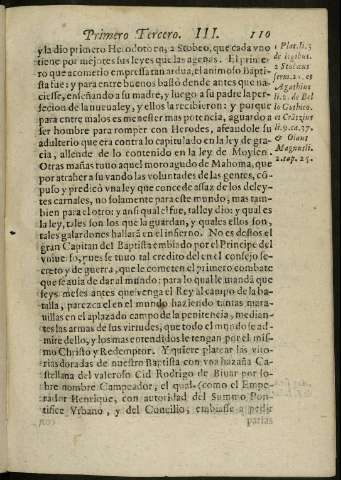 Primero Tercero. III. 110
y la dio primero Herodoto en, 2 Stobeo, que cada vno
tiene por mejores sus leyes que las agenas. El prime-
ro que acometio empressa tan ardua, el animoso Bapti-
sta fue: y para entre buenos bastò dende antes que na-
ciesse, enseñando a su madre, y luego a su padre la per-
fecion de la nueua ley, y ellos la recibieron: y porque
para entre malos es menester mas potencia, aguardo a
ser hombre para romper con Herodes, afeandole su
adulterio que era contra lo capitulado en la ley de gra-
cia, allende de lo contenido en la ley de Moysen.
Otras mañas tuuo aquel moro agudo de Mahoma, que
por atraher a su vando las voluntades de las gentes, cõ-
puso y predicò vna ley que concede assaz de los deley-
tes carnales, no solamente para este mundo; mas tam-
bien para el otro: y ansi qual el fue, tal ley dio; y qual es
la ley, tales son los que la guardan, y quales ellos son,
tales galardones hallarà en el infierno. No es destos el
gran Capitan del Baptista embiado por el Principe del
vniuerso, pues se tuuo tal credito del en el consejo se-
creto y de guerra, que le cometen el primero combate
que se auia de dar al mundo: para lo qual le mandà que
seys meses antes que venga el Rey al campo de la ba-
talla, parezca el en el mundo haziendo tantas mara-
uillas en el aplazado campo de la penitencia, median-
tes las armas de sus virtudes, que todo el mundo se ad-
mire dello, y los mas entendidos le tengan por el mis-
mo Christo y Redemptor. Y quiere platear las vito-
rias doradas de nuestro Baptista con vna hazaña Ca-
stellana del valeroso Cid Rodrigo de Biuar por so-
bre nombre Campeador; el qual (como el Empe-
rador Henrique, con autoridad del Summo Pon-
tifice Vrbano, y del Concilio; embiasse a pedir
parias
1 Plat. li. 3
de legibus.
2 Stobæus
serm. 21. ex
Agathius
li. 2. de Bel
lo Gothico.
et Crâtzius
li. 9. ca. 37.
& Olaus
Magnus li.
2. cap. 25.